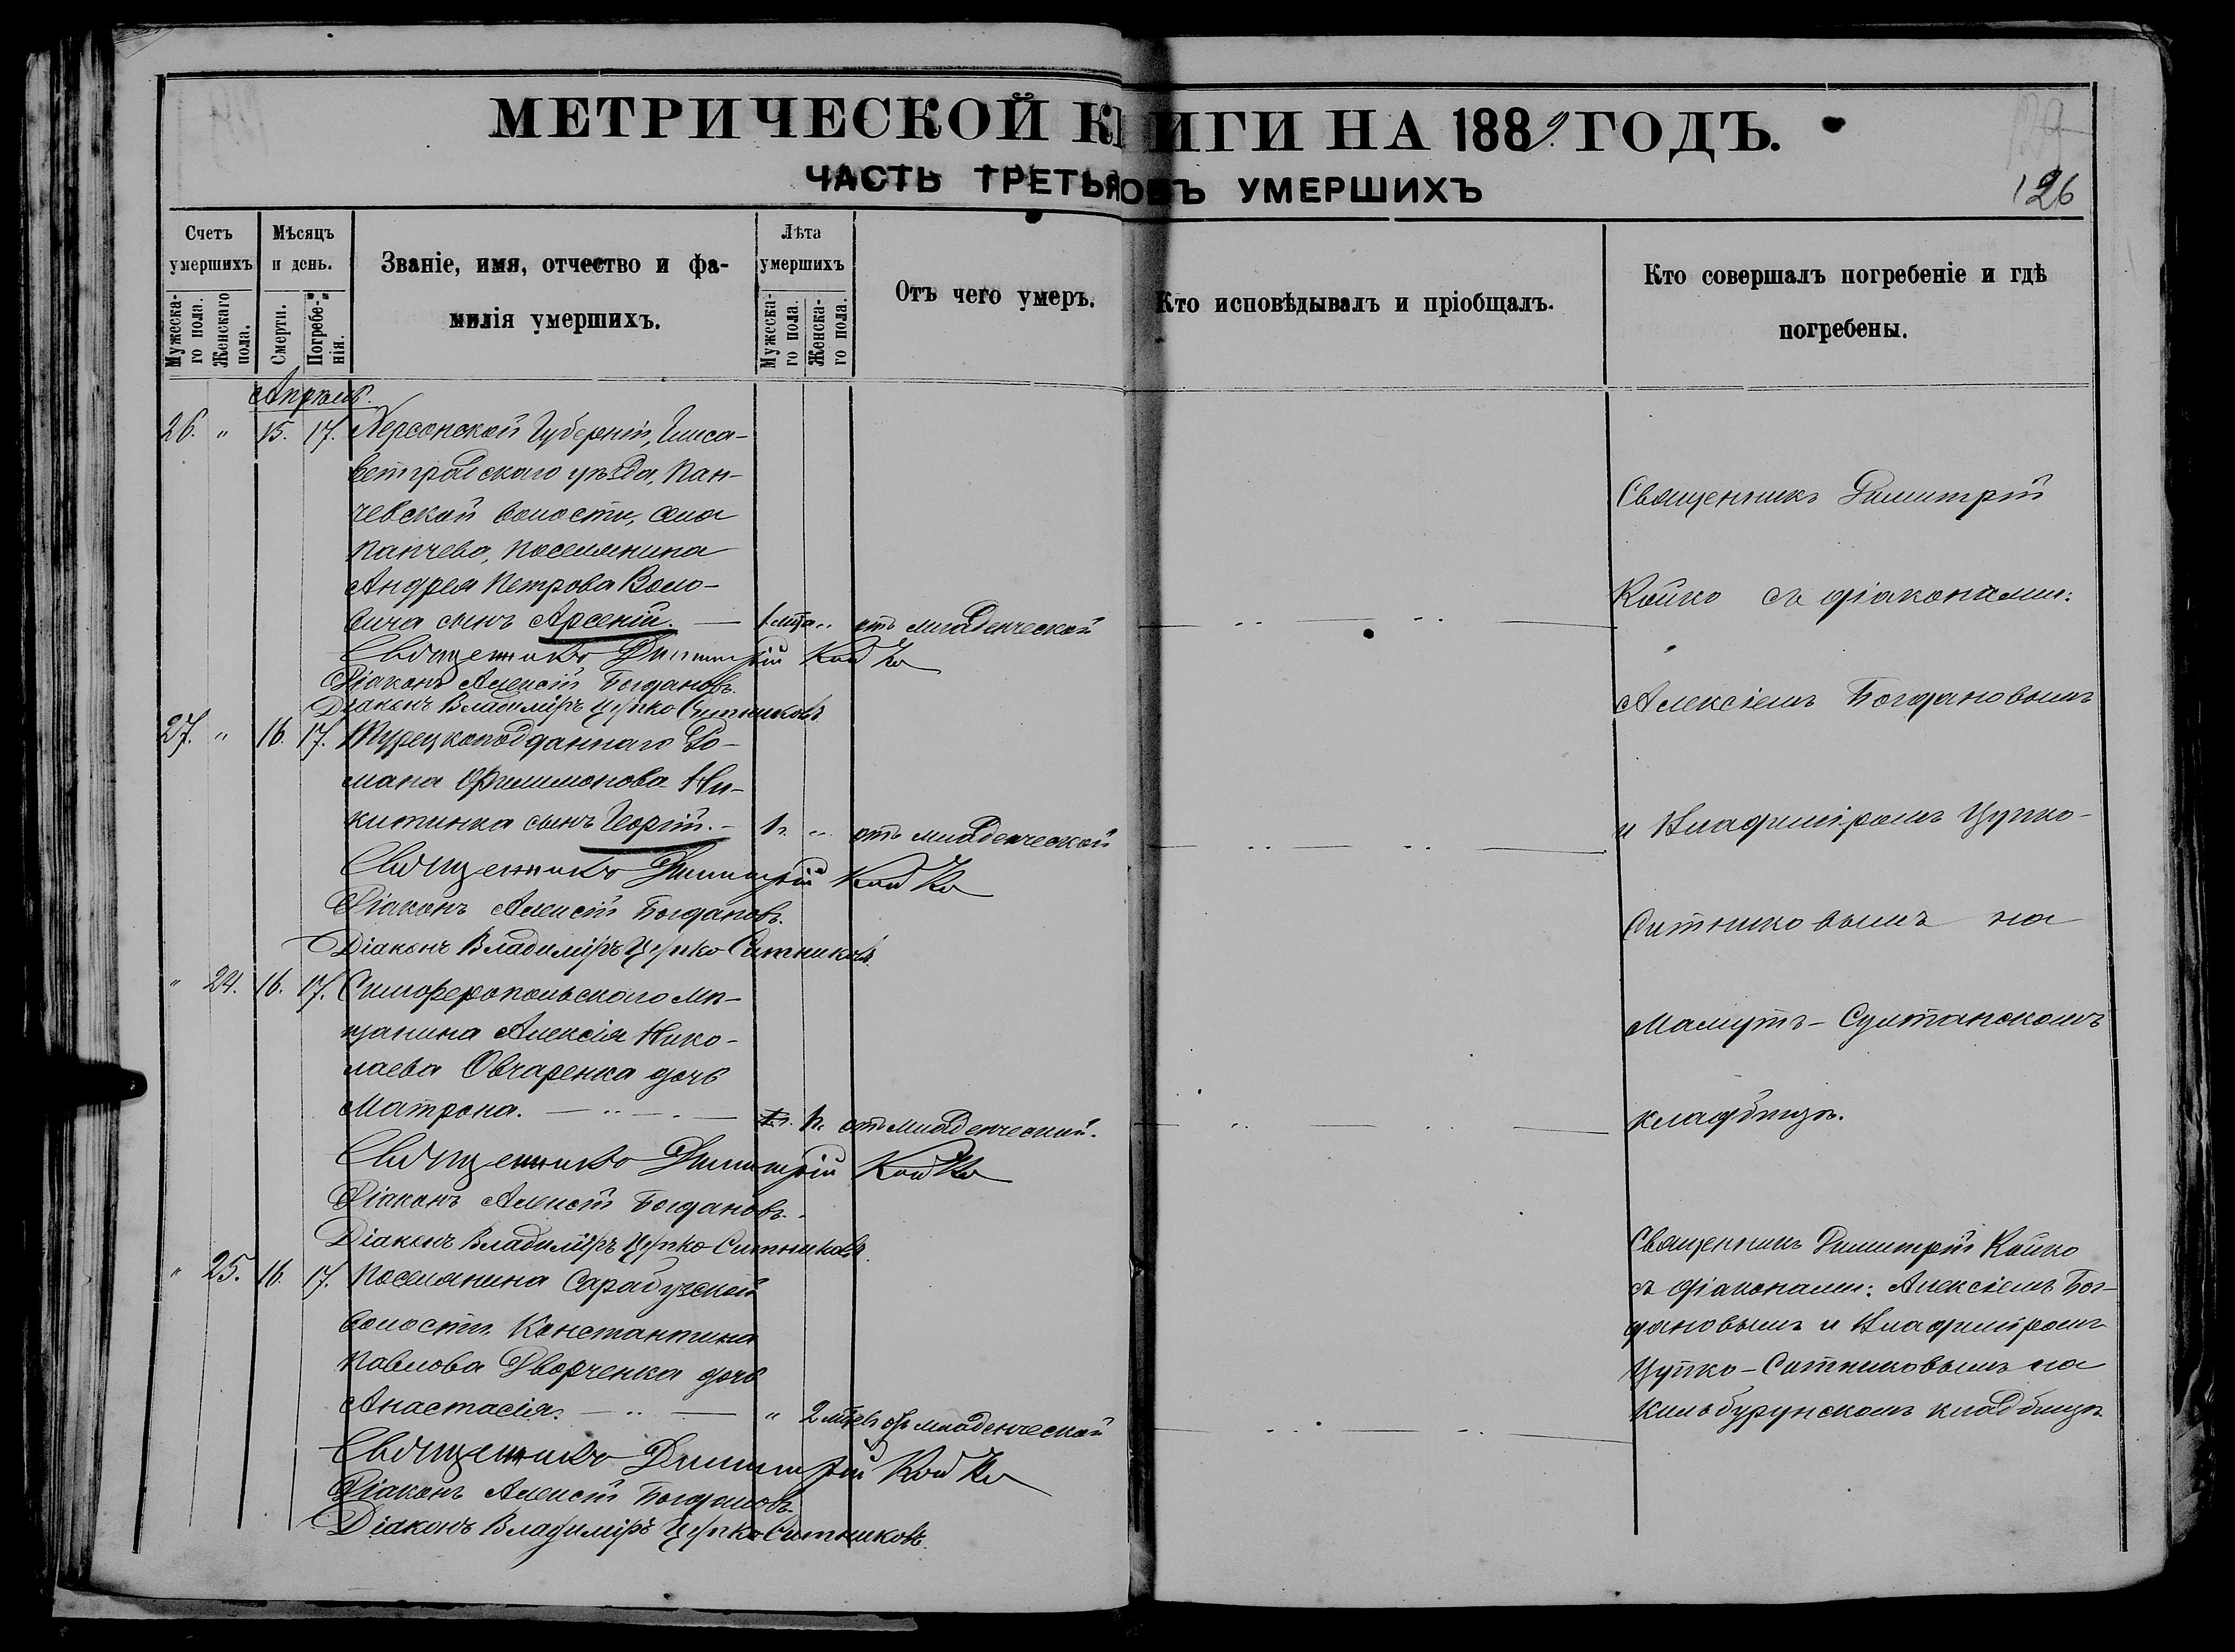 МЕТРИЧЕСКОЙ КНИГИ НА 1889. ГОДЪ.
ЧАСТЬ ТРЕТЬЯ О УМЕРШИХЪ
126
Счетъ умершихъ
Мужеска-го пола.
Женскаго пола.
Мѣсяцъ и день.
Смерти.
Погребе-нія.
Званіе, имя, отчество и фа-
милія умершихъ.
Лѣта умершихъ
Мужеска-го пола.
Женска-го пола.
Отъ чего умеръ.
Кто исповѣдывалъ и пріобщалъ.
Кто совершалъ погребеніе и гдѣ
погребены.
Апрѣль.
26. " 15. 17. Херсонской Губерніи, Елиса-
ветградскаго уѣзда, Пан-
чевской волости, села
Панчево, поселянина
Андрея Петрова Воло-
вича сынъ Арсеній. — 1 мѣс. " отъ младенческой
Священникъ Димитрій Койко
Діаконъ Алексій Богдановъ.
Діаконъ Владиміръ Цупко Ситниковъ
27. " 16. 17. Турецкоподданнаго Ро-
мана Филимонова Ни-
китинка сынъ Георгій. — 1 г. " отъ младенческой
Священникъ Димитрій Койко
Діаконъ Алексій Богдановъ.
Діаконъ Владиміръ Цупко Ситниковъ.
" 24. 16. 17. Симферопольскаго мѣ-
щанина Алексія Нико-
лаева Овчаренка дочь
Матрона. — " — 1 г. отъ младенческой.
Священникъ Димитрій Койко
Діаконъ Алексій Богдановъ.
Діаконъ Владиміръ Цупко-Ситниковъ.
" 25. 16. 17. Поселянина Сарабузской
волости Константина
Павлова Дворченка дочь
Анастасія. — " — " 2 мѣс. отъ младенческой
Священникъ Димитрій Койко
Діаконъ Алексій Богдановъ.
Діаконъ Владиміръ Цупко Ситниковъ.
Священникъ Димитрій
Койко съ діаконами:
Алексіемъ Богдановымъ
и Владиміромъ Цупко-
Ситниковымъ на
Мамутъ-Султанскомъ
кладбищѣ.
Священникъ Димитрій Койко
съ діаконами: Алексіемъ Бог-
дановымъ и Владиміромъ
Цупко-Ситниковымъ на
Кильбурунскомъ кладбищѣ